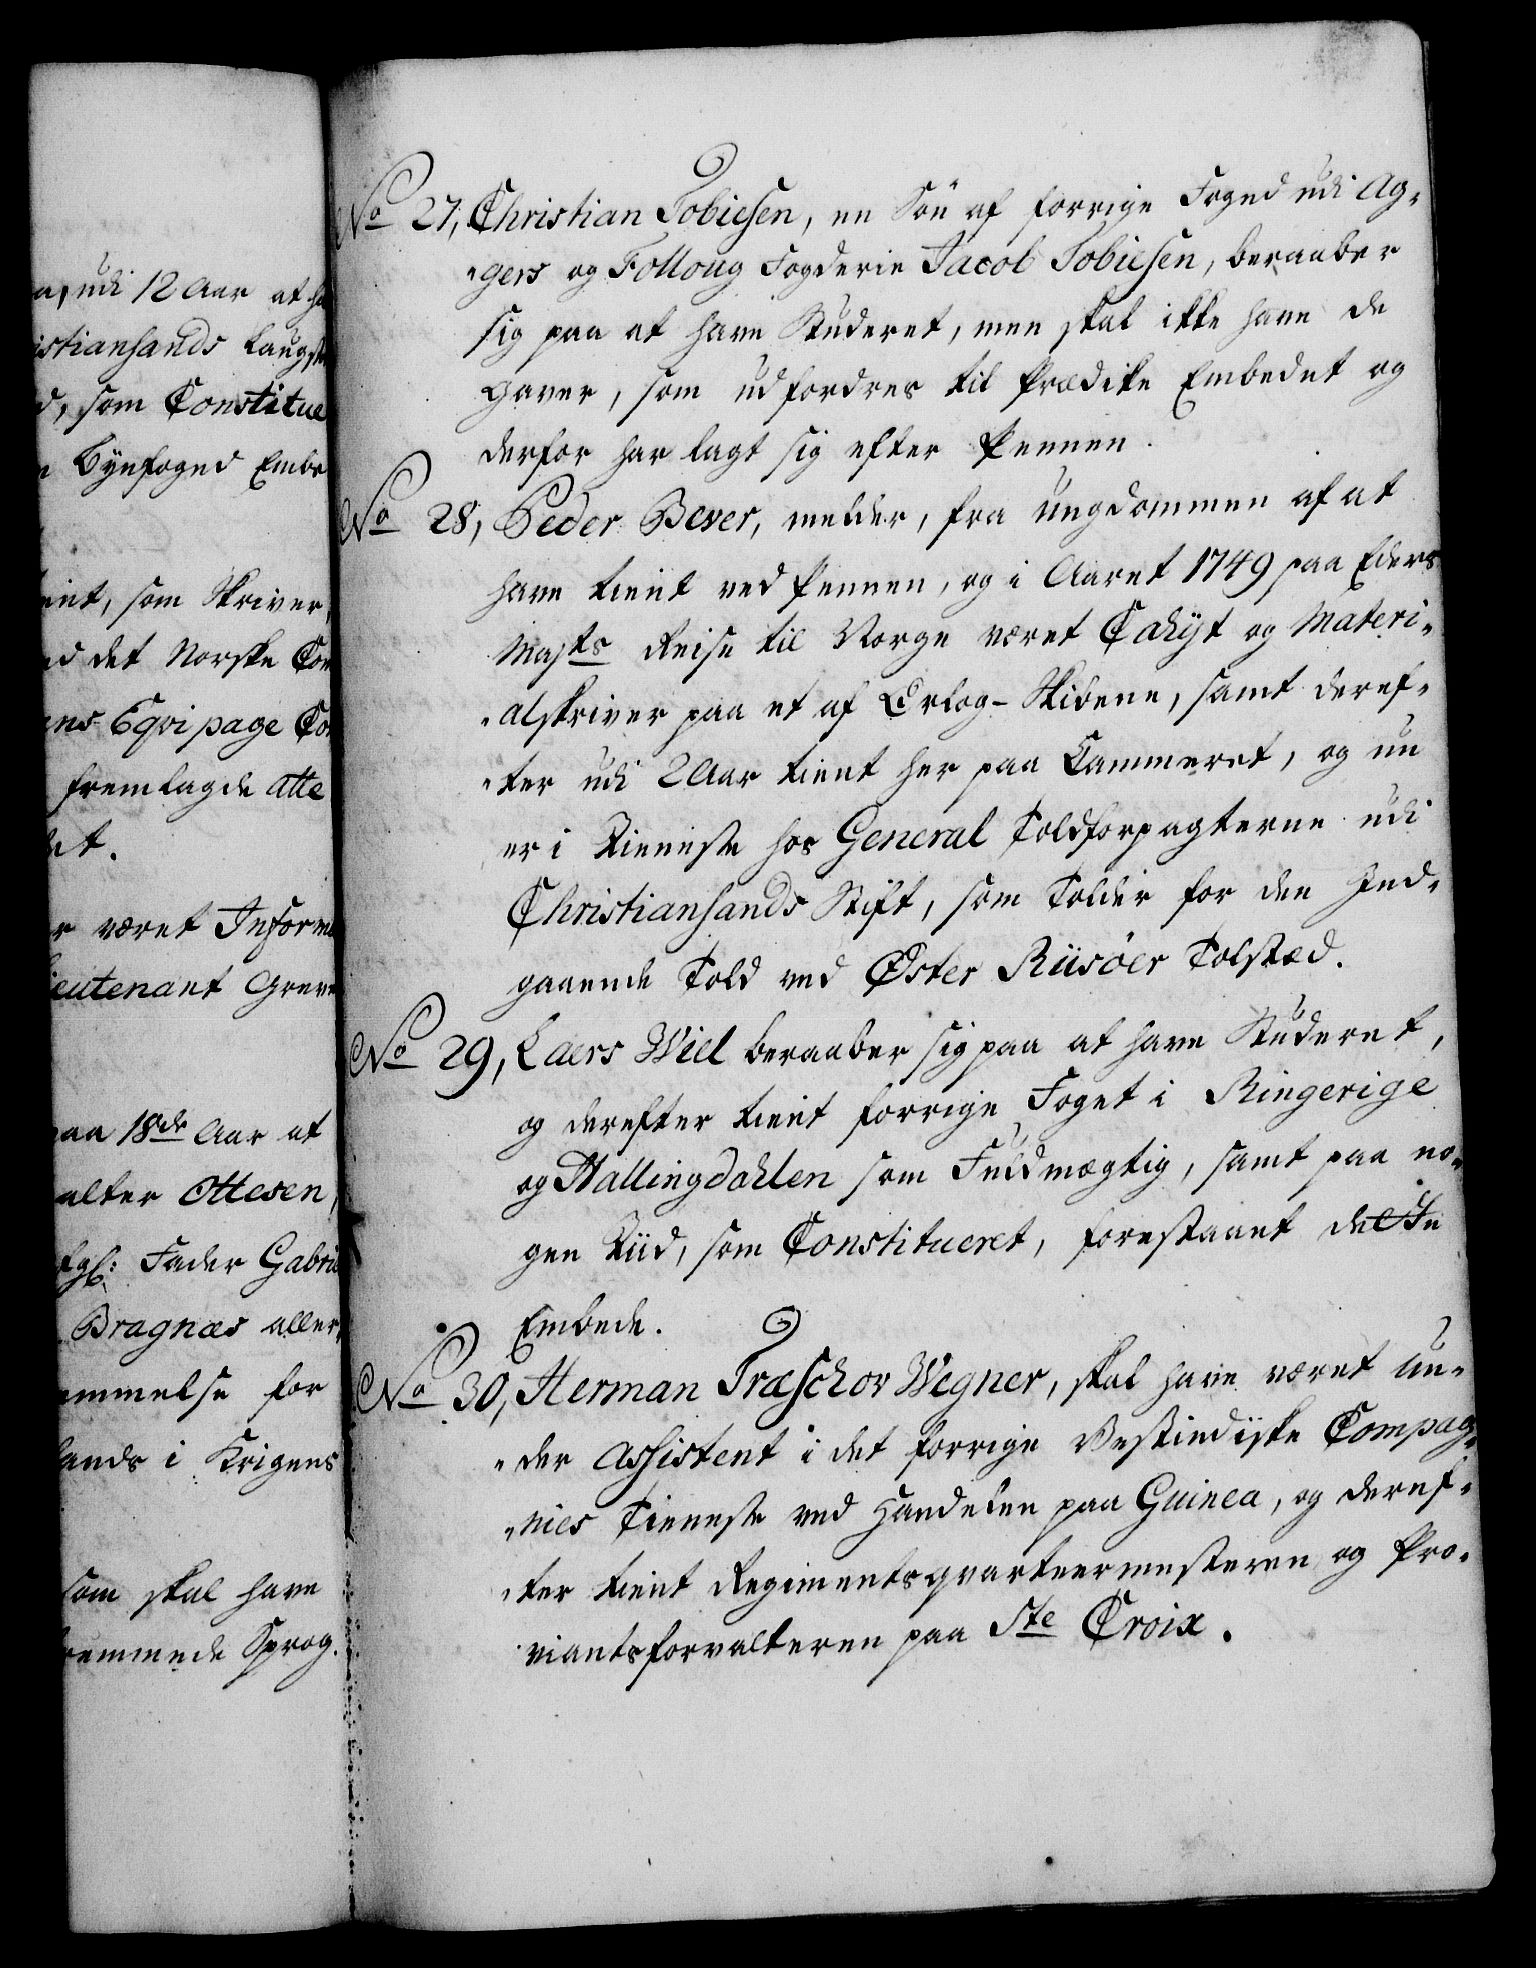 a, udi 12 Aar at ha
istiansands Laugst
d, som Constitue
n Byefoged Embe
ient, som Skriver,
ed det Norske Com
ens Eqvipage Co
fremlagde atte
det.
r været Inform
ieutenant Greve
paa 18de Aar at
alter Ottesen,
Fader Gabrie
Bragnæs aller,
emmelse for
lands i Krigens
som skal have
remmede Sprog.
No 27, Christian Tobiesen, en Søn af forrige Foged udi Ag-
gers og Folloug Fogderie Jacob Tobiesen, beraaber
sig paa at have Studeret, men skal ikke have de
Gaver, som udfordres til Prædike Embedet og
derfor har lagt sig efter Pennen.
No 28, Peder Bever, melder, fra ungdommen af at
have tient ved Pennen, og i Aaret 1749 paa Eders
Majts Reise til Norge været Cahyt og Materi-
alskriver paa et af Orlog-Skibene, samt deref-
ter udi 2 Aar tient her paa Cammeret, og nu
er i Tieneste hos General Toldforpagterne udi
Christiansands Stift, som Tolder for den Ind-
gaaende Told ved Øster Riisöer Tolsted.
No 29, Laers Wiel beraaber sig paa at have Studeret,
og derefter tient forrige Foget i Ringerige
og Hallingdahlen som Fuldmægtig, samt paa no-
gen Tiid, som Constitueret, forestaaet dette
Embede.
No 30, Herman Træschov Wegner, skal have været Un-
der Assistent i det forrige Vestindiske Compag-
nies Tieneste ved Handelen paa Guinea, og deref-
ter tient Regimentsqvarteermesteren og Pro-
viantsforvalteren paa Ste Croix.